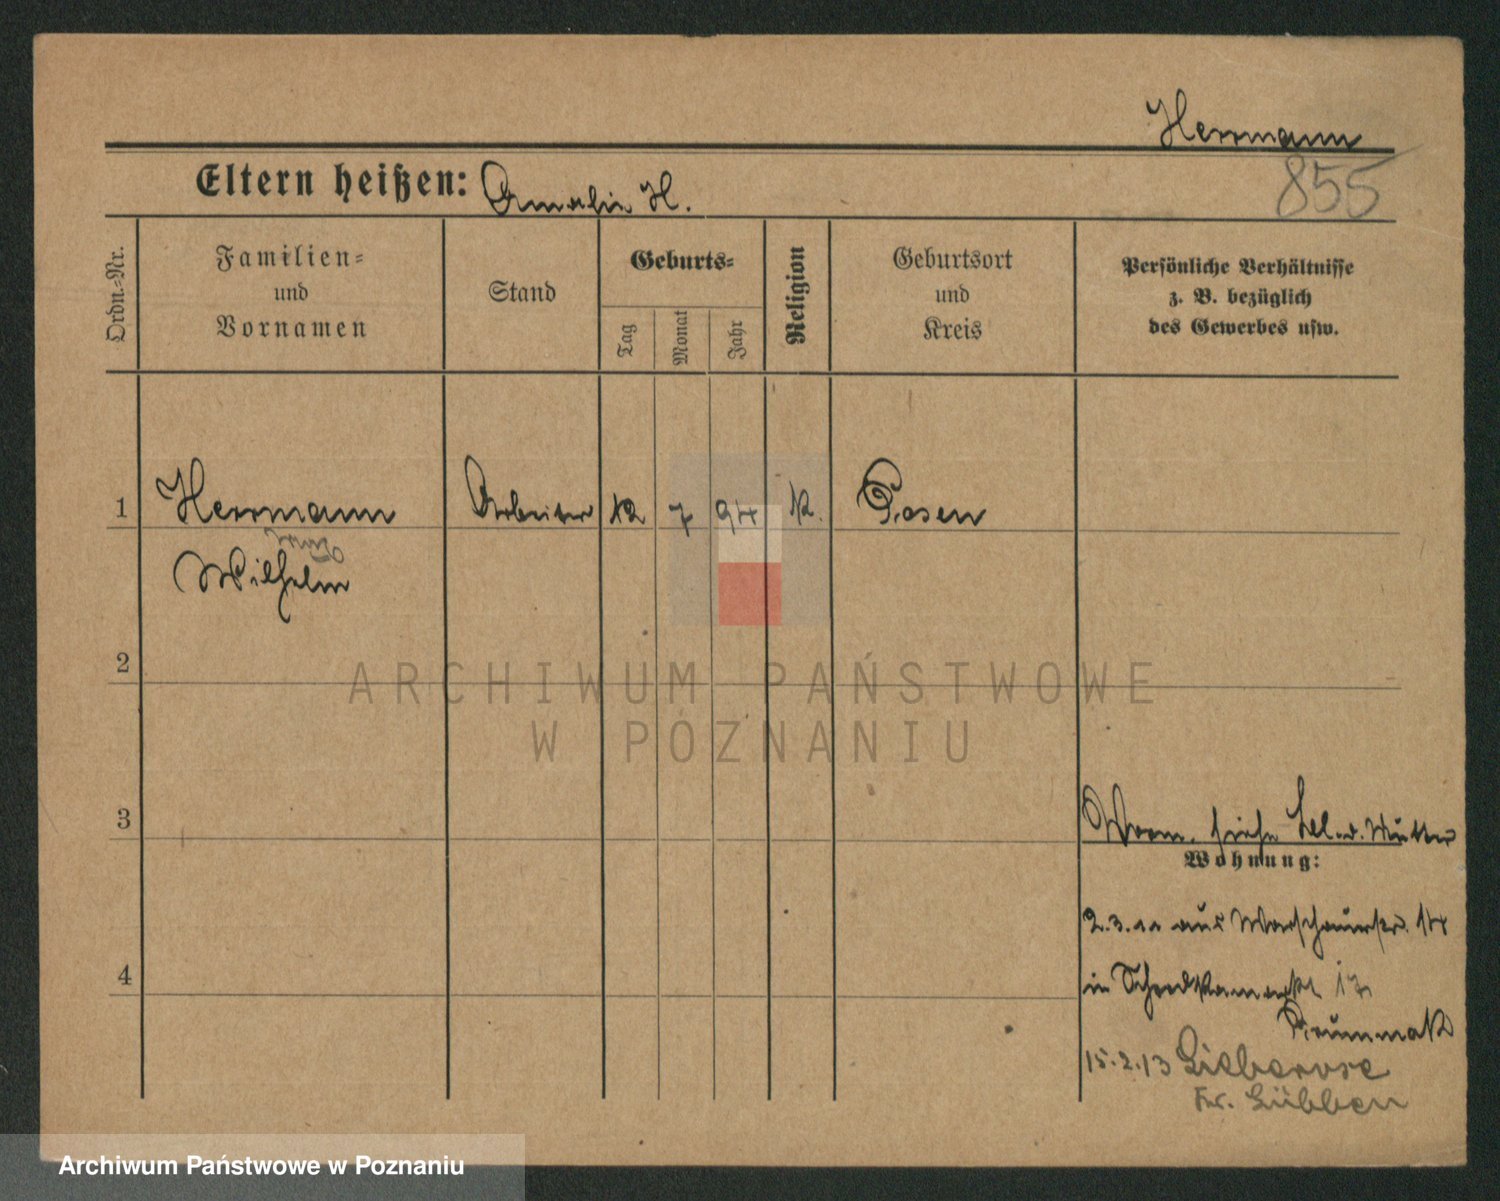 Herrmann
855
Eltern heißen: Amalie H.
Ordn.-Nr.
Familien- und Vornamen
Stand
Geburts-
Tag
Monat
Jahr
Religion
Geburtsort und Kreis
Persönliche Verhältnisse z. B. bezüglich des Gewerbes usw.
1 Herrmann Arbeiter 12 7 94 K. Posen
Wilhelm
2
ARCHIWUM PAŃSTWOWE
W POZNANIU
3
Vorm. siehe bl. d. Mutter
Wohnung:
2.3.11 aus Warschauerstr. 14
4
in Schrodkamarkt 17
15.2.13 Lieberose
Kr. Lübben
Archiwum Państwowe w Poznaniu